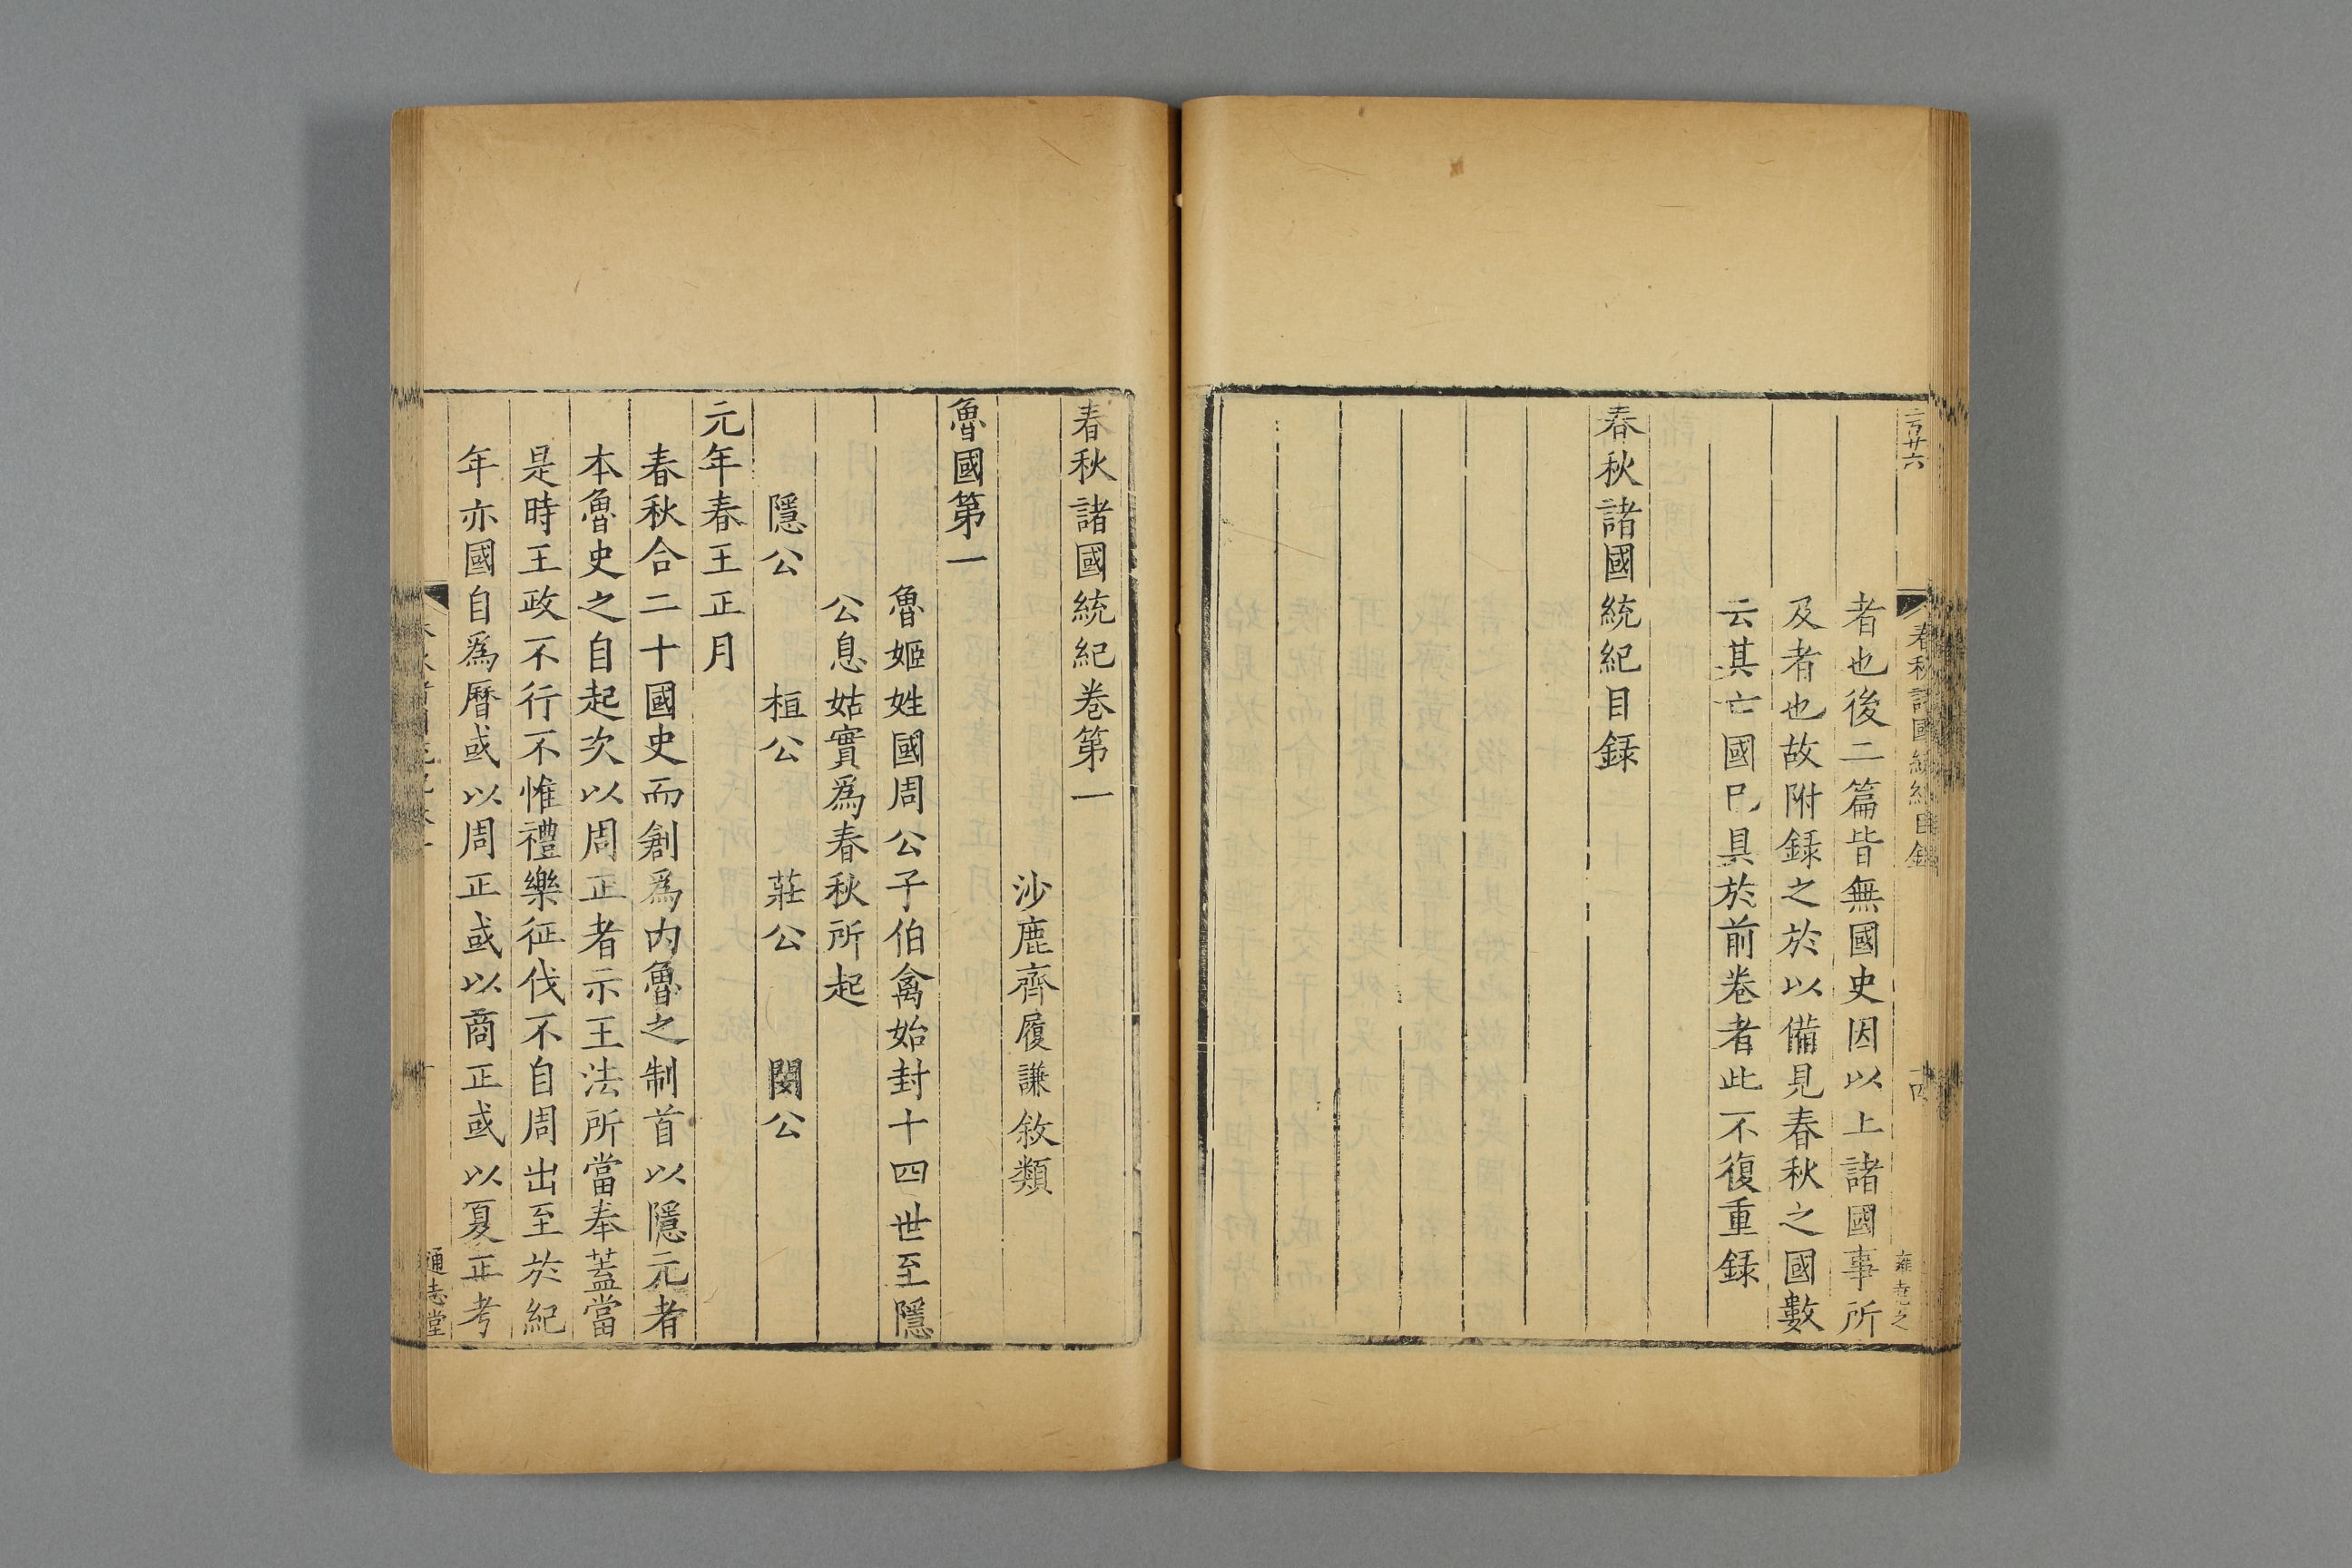 者也後二篇皆無國史因以上諸國事所
及者也故附録之於以備見春秋之國數
云其亡國已具於前卷者此不復重録
春秋諸國統紀目録
春秋諸國統紀卷第一
沙鹿齊履謙敘類
魯國第一
魯姬姓國周公子伯禽始封十四世至隱
公息姑實爲春秋所起
隱公 桓公 莊公 閔公
元年春王正月
春秋合二十國史而創爲内魯之制首以隱元者
本魯史之自起次以周正者示王法所當奉蓋當
是時王政不行不惟禮樂征伐不自周出至於紀
年亦國自爲曆或以周正或以商正或以夏正考
通志堂